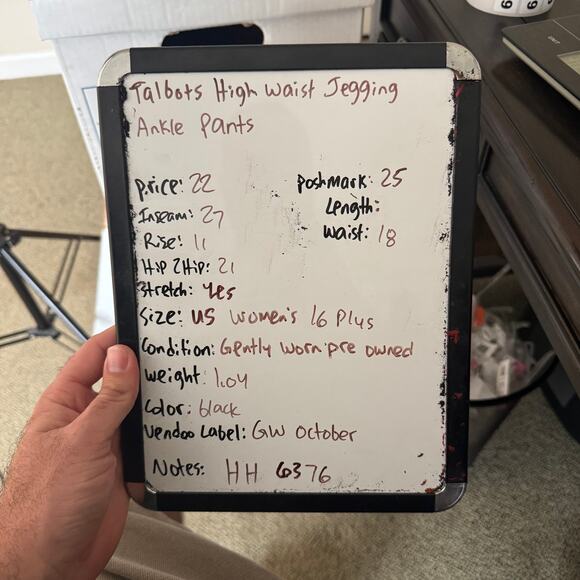 Talbots High Waist Jegging
Ankle Pants
price: 22
poshmark: 25
Inseam: 27
Length:
Rise: 11
Waist: 18
Hip 2 Hip: 21
Stretch: Yes
Size: US Women's 16 Plus
Condition: Gently worn pre owned
Weight: 1.04
Color: black
Vendoo Label: GW October
Notes: HH 6376